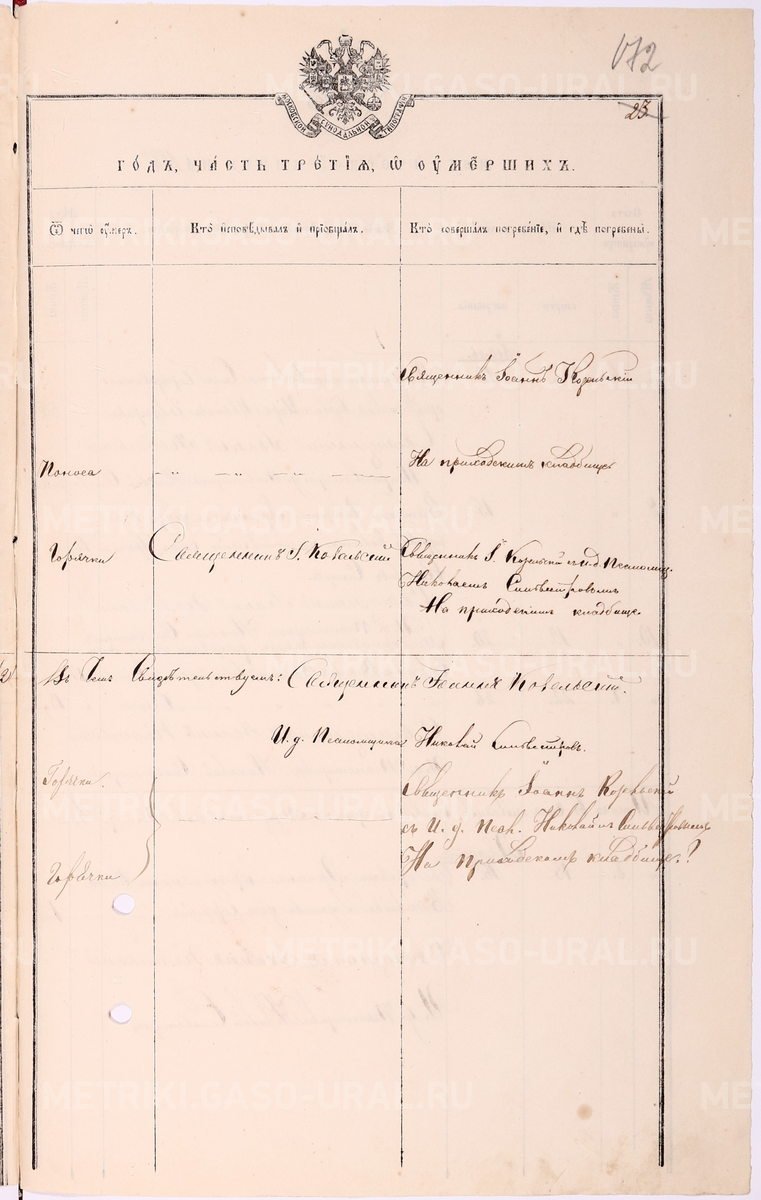 172
23
МОСКОВСКОЙ СѴНОДАЛЬНОЙ ТИПОГРАФІИ
го́дъ, ча́сть тре́тїѧ, ѡ҆ оу҆ме́ршихъ.
Ѿ чегѡ̀ оу҆́меръ.
Кто̀ и҆сповѣ́дывалъ и҆ прїобща́лъ.
Кто̀ соверша́лъ погребе́нїе, и҆ гдѣ̀ погребены̀.
Священникъ Іоаннъ
Поноса
На приходскимъ кладбище
Горячки
Священникъ І.
Священникъ І. и и.д. Псаломщ.
Николаемъ Сильвестровымъ
На приходскимъ кладбище.
Въ семъ свидѣтельствуемъ: Священникъ Іоаннъ
И. д. Псаломщика Николай Сильвестровъ.
Горячки.
Священникъ Іоаннъ
съ И. д. Псал. Николаемъ Сильвестровымъ
На приходскомъ кладбище.
Горячки
METRIKI.GASO-URAL.RU